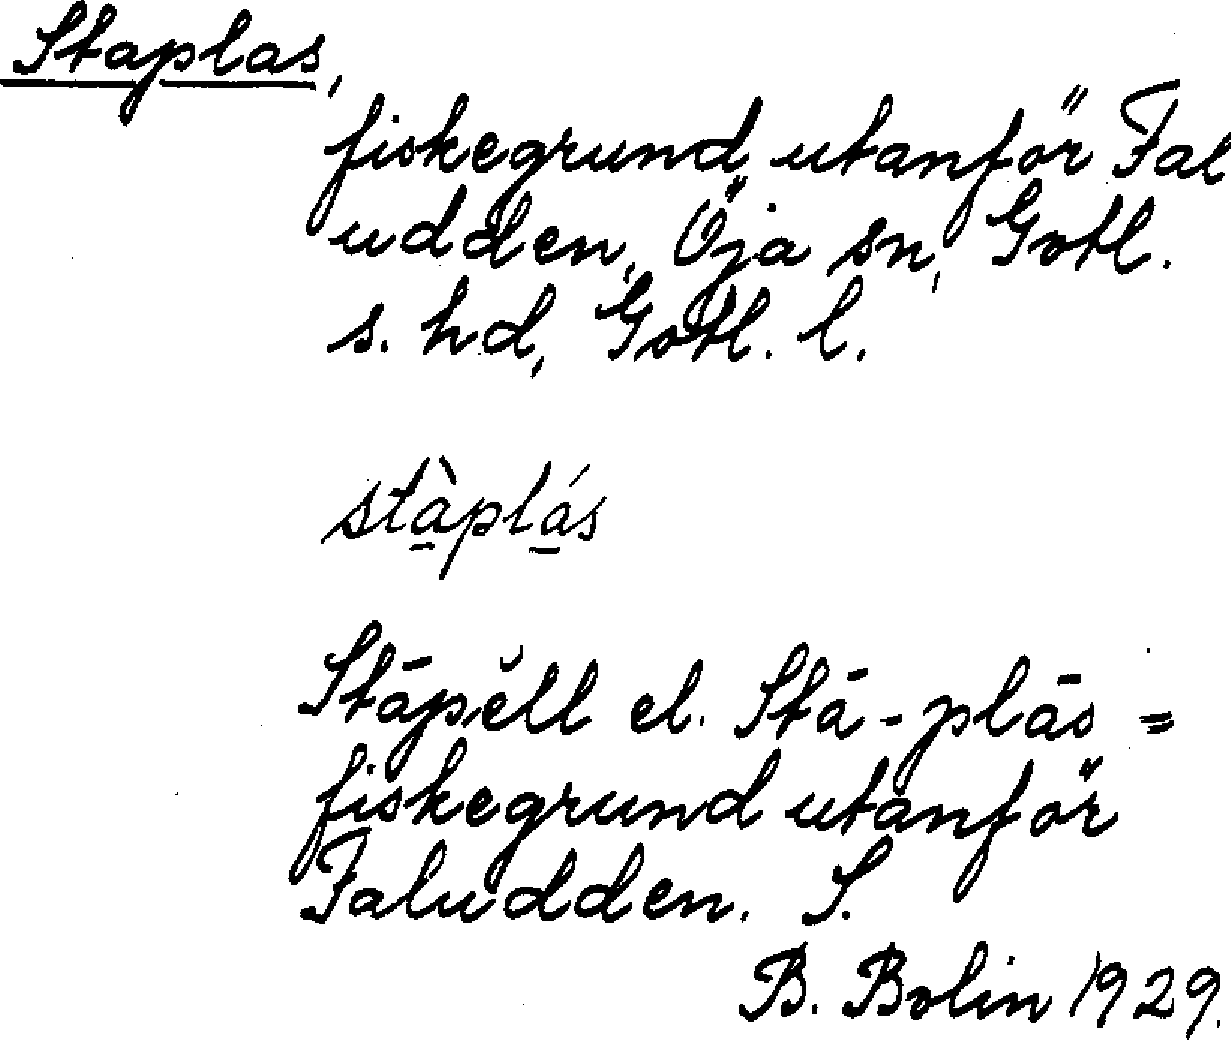 Staplas,
fiskegrund utanför Fal
udden, Öja sn, Gotl.
s. hd, Gotl. l.
stà̱plá̱s
Stāpĕll el. Stā-plās =
fiskegrund utanför
Faludden. S.
B. Bolin 1929.